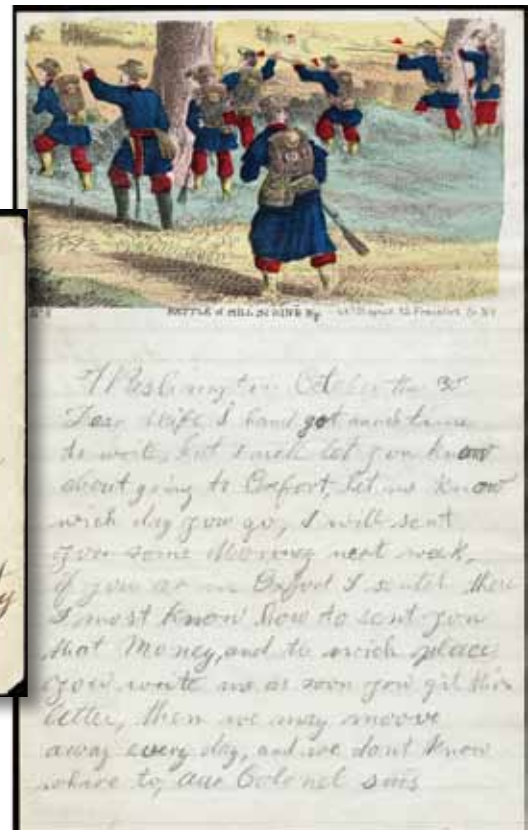 BATTLE of MILL SPRING Ky.
Washington October the 3
Dear Wife I hand got much time
to wright, but I well let you know
about going to Oxfort, let me know
wich day you go, I will sent
you some Moony next week,
if you ar in Oxfort I sentet there
I most know how to sent you
that Money, and to wich place
you wrote me as soon you git this
letter, then we may moove
away every day, and we dont know
where to, our Colonel